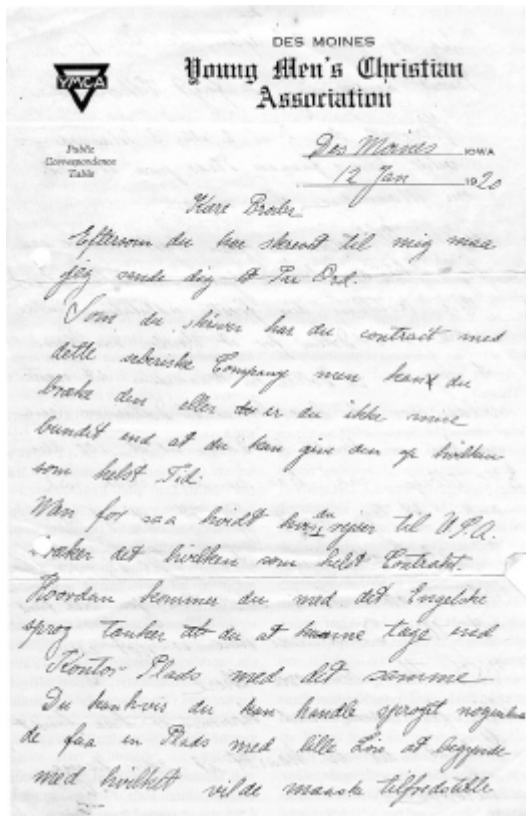 DES MOINES
Young Men's Christian
Association
YMCA
Public
Correspondence
Table
Des Moines IOWA
12 Jan 1920
Kære Broder
Eftersom du har skrevet til mig maa
jeg sende dig et Par Ord.
Som du skriver har du contract med
dette seberiske Company men kan du
bræke den eller er du ikke mere
bundet end at du kan give den op hvilken
som helst Tid.
for saa hvidt hvis du rejser til U.S.A.
bræker det hvilken som helst Contrakt.
Hvordan kommer du med det Engelske
sprog tænker du at kunne tage end
Kontor Plads med det samme
Du kan hvis du kan handle sproget
de faa en Plads med lille Løn at begynde
med hvilket vilde maaske tilfredstille